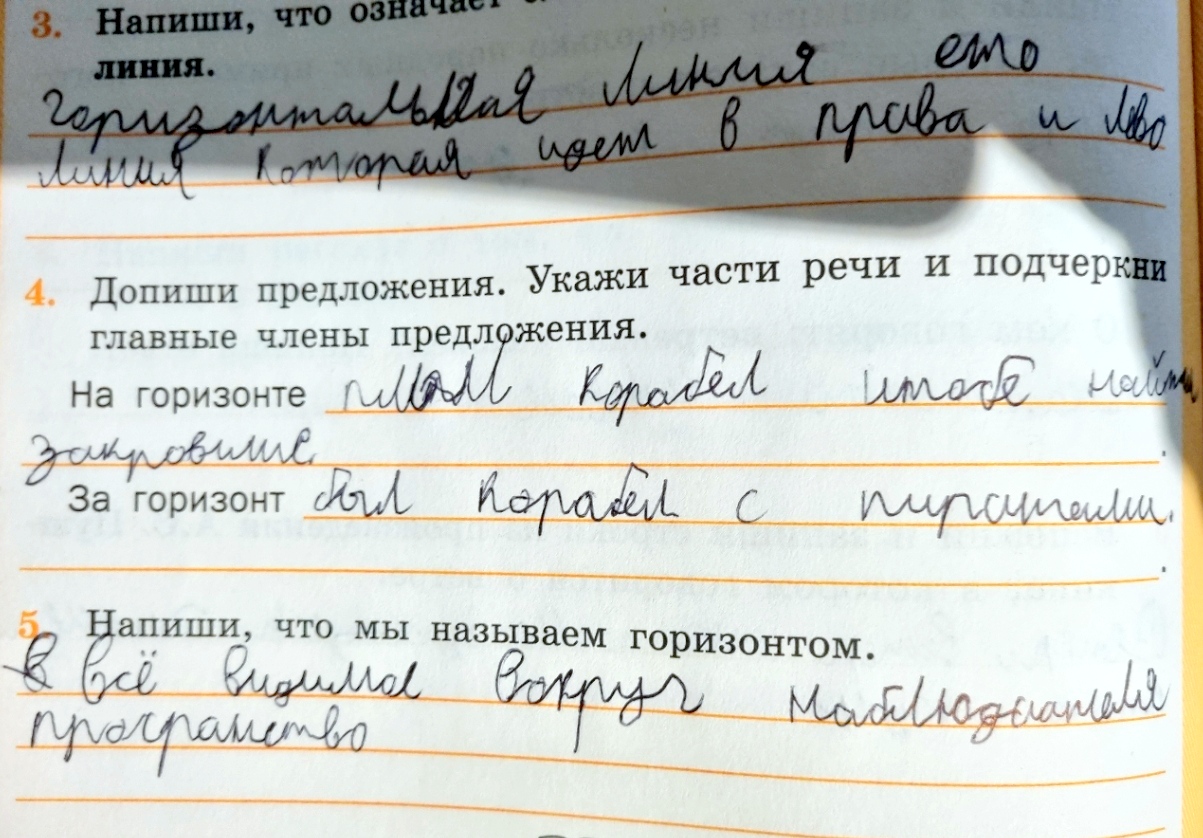 3. Напиши, что означает
линия.
горизонтальная линия ето
линия которая идет в права и лево
4. Допиши предложения. Укажи части речи и подчеркни
главные члены предложения.
На горизонте плыл карабел штобе найти
закровише.
За горизонт был карабел с пиратами.
5. Напиши, что мы называем горизонтом.
всё видимое вокруг наблюдателя
пространство